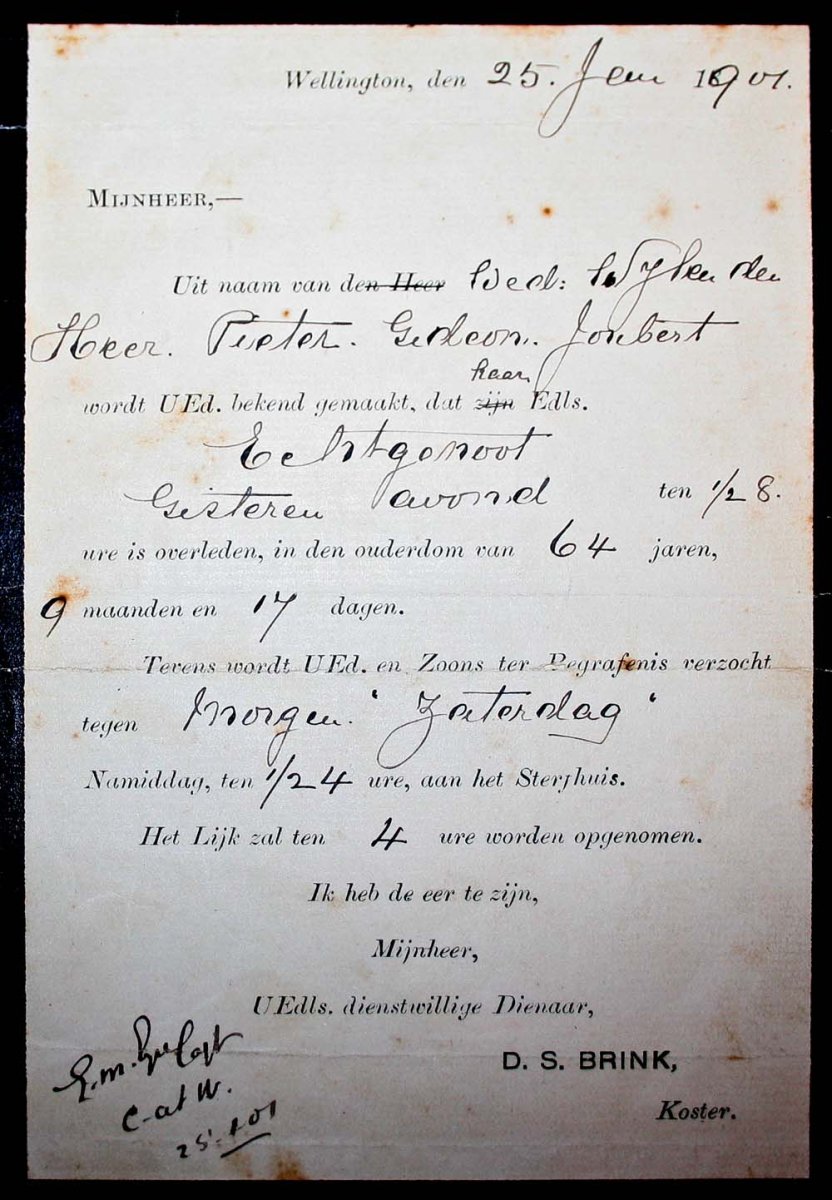 Wellington, den 25. Jan 1901.
MIJNHEER,—
Uit naam van den Heer Wed: Wylen den
Heer. Pieter. Gideon. Joubert
haar
wordt UEd. bekend gemaakt, dat zijn Edls.
Echtgenoot
Gisteren avond ten 1/2 8.
ure is overleden, in den ouderdom van 64 jaren,
9 maanden en 17 dagen.
Tevens wordt UEd. en Zoons ter Begrafenis verzocht
tegen Morgen. "Zaterdag"
Namiddag, ten 1/2 4 ure, aan het Sterfhuis.
Het Lijk zal ten 4 ure worden opgenomen.
Ik heb de eer te zijn,
Mijnheer,
UEdls. dienstwillige Dienaar,
D. S. BRINK,
Koster.
C-at W.
25.1.01